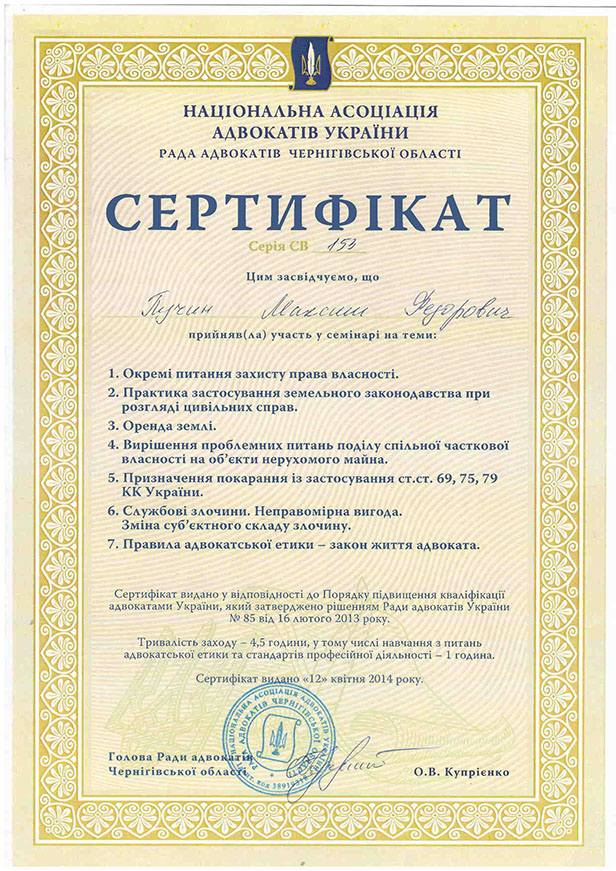 НАЦІОНАЛЬНА АСОЦІАЦІЯ
АДВОКАТІВ УКРАЇНИ
РАДА АДВОКАТІВ ЧЕРНІГІВСЬКОЇ ОБЛАСТІ
СЕРТИФІКАТ
Серія СВ 153
Цим засвідчуємо, що
Пучин Максим Федорович
прийняв(ла) участь у семінарі на теми:
1. Окремі питання захисту права власності.
2. Практика застосування земельного законодавства при
розгляді цивільних справ.
3. Оренда землі.
4. Вирішення проблемних питань поділу спільної часткової
власності на об'єкти нерухомого майна.
5. Призначення покарання із застосування ст.ст. 69, 75, 79
КК України.
6. Службові злочини. Неправомірна вигода.
Зміна суб'єктного складу злочину.
7. Правила адвокатської етики – закон життя адвоката.
Сертифікат видано у відповідності до Порядку підвищення кваліфікації
адвокатами України, який затверджено рішенням Ради адвокатів України
№ 85 від 16 лютого 2013 року.
Тривалість заходу – 4,5 години, у тому числі навчання з питань
адвокатської етики та стандартів професійної діяльності – 1 година.
Сертифікат видано «12» квітня 2014 року.
НАЦІОНАЛЬНА АСОЦІАЦІЯ АДВОКАТІВ УКРАЇНИ
РАДА АДВОКАТІВ ЧЕРНІГІВСЬКОЇ ОБЛАСТІ
Голова Ради адвокатів
Чернігівської області
О.В. Купрієнко